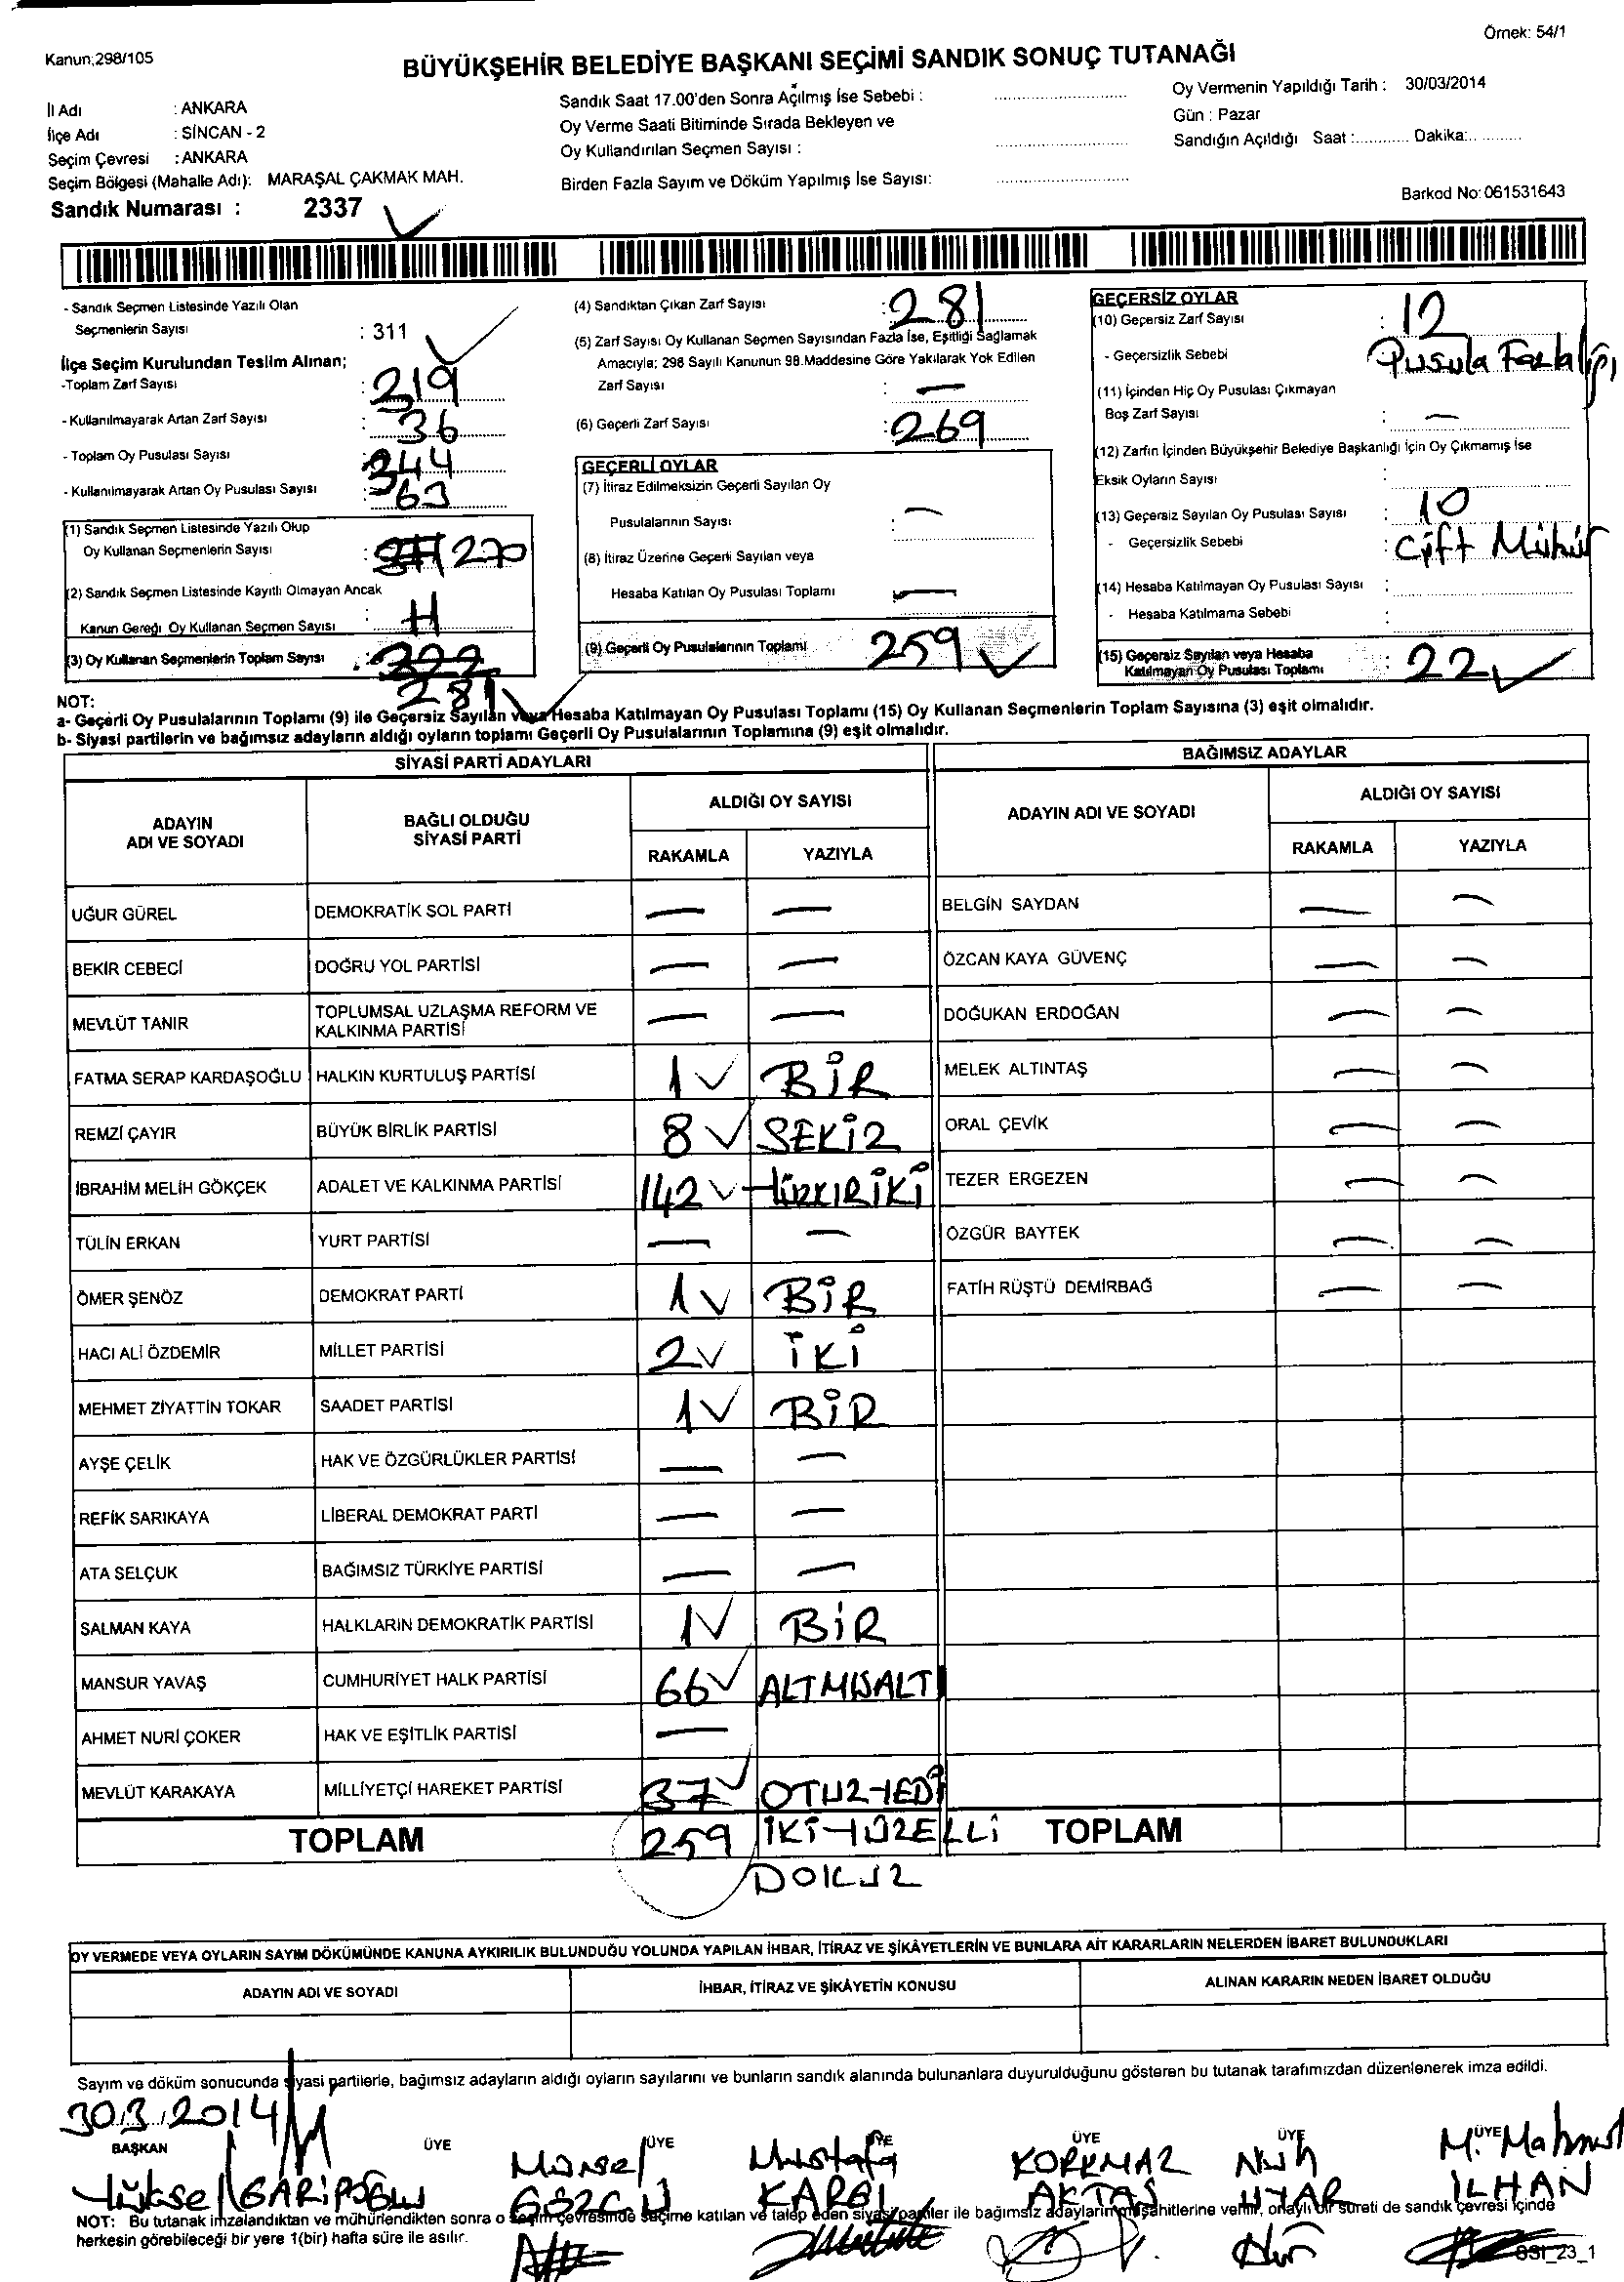 Örnek: 54/1
Kanun;298/105
BÜYÜKŞEHİR BELEDİYE BAŞKANI SEÇİMİ SANDIK SONUÇ TUTANAĞI
İl Adı : ANKARA
İlçe Adı : SİNCAN - 2
Seçim Çevresi : ANKARA
Seçim Bölgesi (Mahalle Adı): MARAŞAL ÇAKMAK MAH.
Sandık Numarası : 2337
Sandık Saat 17.00'den Sonra Açılmış İse Sebebi :
Oy Verme Saati Bitiminde Sırada Bekleyen ve
Oy Kullandırılan Seçmen Sayısı :
Birden Fazla Sayım ve Döküm Yapılmış İse Sayısı:
Oy Vermenin Yapıldığı Tarih : 30/03/2014
Gün : Pazar
Sandığın Açıldığı Saat :............ Dakika:.. .........
Barkod No: 061531643
- Sandık Seçmen Listesinde Yazılı Olan
Seçmenlerin Sayısı : 311
İlçe Seçim Kurulundan Teslim Alınan;
-Toplam Zarf Sayısı : 319
- Kullanılmayarak Artan Zarf Sayısı : 36
- Toplam Oy Pusulası Sayısı : 344
- Kullanılmayarak Artan Oy Pusulası Sayısı : 63
(1) Sandık Seçmen Listesinde Yazılı Olup
Oy Kullanan Seçmenlerin Sayısı : 270
(2) Sandık Seçmen Listesinde Kayıtlı Olmayan Ancak
Kanun Gereği Oy Kullanan Seçmen Sayısı : 11
(3) Oy Kullanan Seçmenlerin Toplam Sayısı : 322
281
(4) Sandıktan Çıkan Zarf Sayısı : 281
(5) Zarf Sayısı Oy Kullanan Seçmen Sayısından Fazla İse, Eşitliği Sağlamak
Amacıyla; 298 Sayılı Kanunun 98.Maddesine Göre Yakılarak Yok Edilen
Zarf Sayısı : —
(6) Geçerli Zarf Sayısı : 269
GEÇERLİ OYLAR
(7) İtiraz Edilmeksizin Geçerli Sayılan Oy
Pusulalarının Sayısı : —
(8) İtiraz Üzerine Geçerli Sayılan veya
Hesaba Katılan Oy Pusulası Toplamı —
(9) Geçerli Oy Pusulalarının Toplamı 259
GEÇERSİZ OYLAR
(10) Geçersiz Zarf Sayısı : 12
- Geçersizlik Sebebi Pusula Fazlalığı
(11) İçinden Hiç Oy Pusulası Çıkmayan
Boş Zarf Sayısı : —
(12) Zarfın İçinden Büyükşehir Belediye Başkanlığı İçin Oy Çıkmamış İse
Eksik Oyların Sayısı :
(13) Geçersiz Sayılan Oy Pusulası Sayısı : 10
- Geçersizlik Sebebi : Çift Mühür
(14) Hesaba Katılmayan Oy Pusulası Sayısı :
- Hesaba Katılmama Sebebi :
(15) Geçersiz Sayılan veya Hesaba
Katılmayan Oy Pusulası Toplamı : 22
NOT:
a- Geçerli Oy Pusulalarının Toplamı (9) ile Geçersiz Sayılan veya Hesaba Katılmayan Oy Pusulası Toplamı (15) Oy Kullanan Seçmenlerin Toplam Sayısına (3) eşit olmalıdır.
b- Siyasi partilerin ve bağımsız adayların aldığı oyların toplamı Geçerli Oy Pusulalarının Toplamına (9) eşit olmalıdır.
SİYASİ PARTİ ADAYLARI
ADAYIN
ADI VE SOYADI
BAĞLI OLDUĞU
SİYASİ PARTİ
ALDIĞI OY SAYISI
RAKAMLA YAZIYLA
UĞUR GÜREL DEMOKRATİK SOL PARTİ — —
BEKİR CEBECİ DOĞRU YOL PARTİSİ — —
MEVLÜT TANIR TOPLUMSAL UZLAŞMA REFORM VE
KALKINMA PARTİSİ — —
FATMA SERAP KARDAŞOĞLU HALKIN KURTULUŞ PARTİSİ 1 BİR
REMZİ ÇAYIR BÜYÜK BİRLİK PARTİSİ 8 SEKİZ
İBRAHİM MELİH GÖKÇEK ADALET VE KALKINMA PARTİSİ 142 YÜZKIRİKİ
TÜLİN ERKAN YURT PARTİSİ — —
ÖMER ŞENÖZ DEMOKRAT PARTİ 1 BİR
HACI ALİ ÖZDEMİR MİLLET PARTİSİ 2 İKİ
MEHMET ZİYATTİN TOKAR SAADET PARTİSİ 1 BİR
AYŞE ÇELİK HAK VE ÖZGÜRLÜKLER PARTİSİ — —
REFİK SARIKAYA LİBERAL DEMOKRAT PARTİ — —
ATA SELÇUK BAĞIMSIZ TÜRKİYE PARTİSİ — —
SALMAN KAYA HALKLARIN DEMOKRATİK PARTİSİ 1 BİR
MANSUR YAVAŞ CUMHURİYET HALK PARTİSİ 66 ALTMIŞALTI
AHMET NURİ ÇOKER HAK VE EŞİTLİK PARTİSİ —
MEVLÜT KARAKAYA MİLLİYETÇİ HAREKET PARTİSİ 37 OTUZYEDİ
TOPLAM 259 İKİYÜZELLİ
DOKUZ
BAĞIMSIZ ADAYLAR
ADAYIN ADI VE SOYADI
ALDIĞI OY SAYISI
RAKAMLA YAZIYLA
BELGİN SAYDAN — —
ÖZCAN KAYA GÜVENÇ — —
DOĞUKAN ERDOĞAN — —
MELEK ALTINTAŞ — —
ORAL ÇEVİK — —
TEZER ERGEZEN — —
ÖZGÜR BAYTEK — —
FATİH RÜŞTÜ DEMİRBAĞ — —
TOPLAM
OY VERMEDE VEYA OYLARIN SAYIM DÖKÜMÜNDE KANUNA AYKIRILIK BULUNDUĞU YOLUNDA YAPILAN İHBAR, İTİRAZ VE ŞİKÂYETLERİN VE BUNLARA AİT KARARLARIN NELERDEN İBARET BULUNDUKLARI
ADAYIN ADI VE SOYADI İHBAR, İTİRAZ VE ŞİKÂYETİN KONUSU ALINAN KARARIN NEDEN İBARET OLDUĞU
Sayım ve döküm sonucunda siyasi partilerle, bağımsız adayların aldığı oyların sayılarını ve bunların sandık alanında bulunanlara duyurulduğunu gösteren bu tutanak tarafımızdan düzenlenerek imza edildi.
30.3.2014
BAŞKAN ÜYE ÜYE ÜYE ÜYE ÜYE ÜYE
Yüksel GARİPOĞLU
Mürsel GÖZCÜ
Mustafa KARGI
KORKMAZ AKTAŞ
Nuh UYAR
M. Mahmut İLHAN
NOT: Bu tutanak imzalandıktan ve mühürlendikten sonra o seçim çevresinde seçime katılan ve talep eden siyasi partiler ile bağımsız adayların müşahitlerine verilir, onaylı bir sureti de sandık çevresi içinde
herkesin görebileceği bir yere 1(bir) hafta süre ile asılır.
SSI_23_1